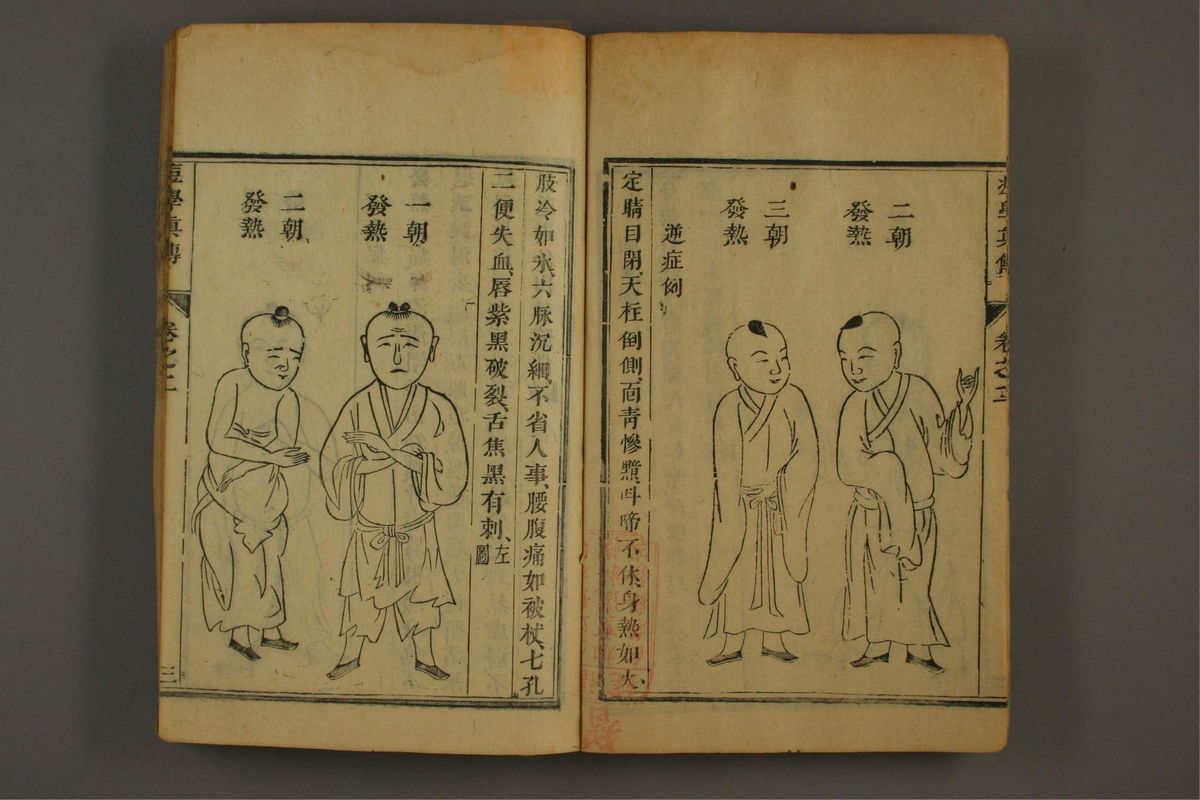 二朝
發熱
三朝
發熱
逆症例
定睛目閉、天柱倒側、面青慘黯、呌啼不休、身熱如火、
肢冷如氷、六脉沉細、不省人事、腰腹痛如被杖、七孔
二便失血、唇紫黑破裂、舌焦黑有刺、左圖
一朝
發熱
二朝
發熱
痘學眞傳
卷之二
三